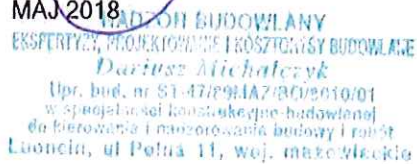 MAJ 2018
NADZÓR BUDOWLANY
EKSPERTYZY, PROJEKTOWANIE I KOSZTORYSY BUDOWLANE
Dariusz Michalczyk
Upr. bud. nr St-47/89
w specjalności konstrukcyjno-budowlanej
do kierowania i nadzorowania budowy i robót
ul Polna 11, woj. mazowieckie